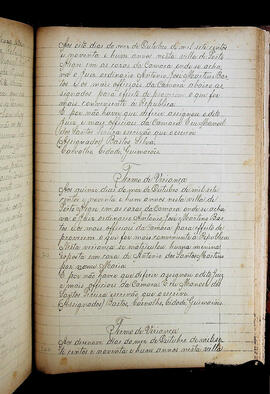 Aos oito dias do mez de Outubro de mil sete centos
e noventa e hum annos nesta villa de Porto
Alegre em as casas da Camara onde se acha
va o Juiz ordinario Antonio José Martins Bas
tos e os mais officiaes da Camara abaixo as
signados para effeito de proverem o que for
mais conveniente a Republica.
E por não haver que deferir assignou o dito
Juiz e mais officiaes da Camara. E eu Manoel
dos Santos escrivão que o escrevi.
Assignados) Bastos, Silva,
Carvalho, Cidade, Guimarães
Thermo de Veriança
Aos quinze dias do mez de Outubro de mil sete
centos e noventa e hum annos nesta villa de
Porto Alegre em as casas da Camara onde se acha
va o Juiz ordinario Antonio José Martins Bas
tos e os mais officiaes da Camara para effeito de
proverem o que for mais conveniente a Republica
Nesta veriança se matriculou huma menina
exposta em casa de Antonio dos Santos Martins
por nome Maria.
E por não haver que deferir assignou o dito Juiz
e mais officiaes da Camara. E eu Manoel dos
Santos escrivão que o escrevi
Assignados) Bastos, Carvalho, Cidade, Guimarães
Thermo de Veriança
Aos dezenove dias do mez de Outubro de mil se
te centos e noventa e hum annos nesta villa